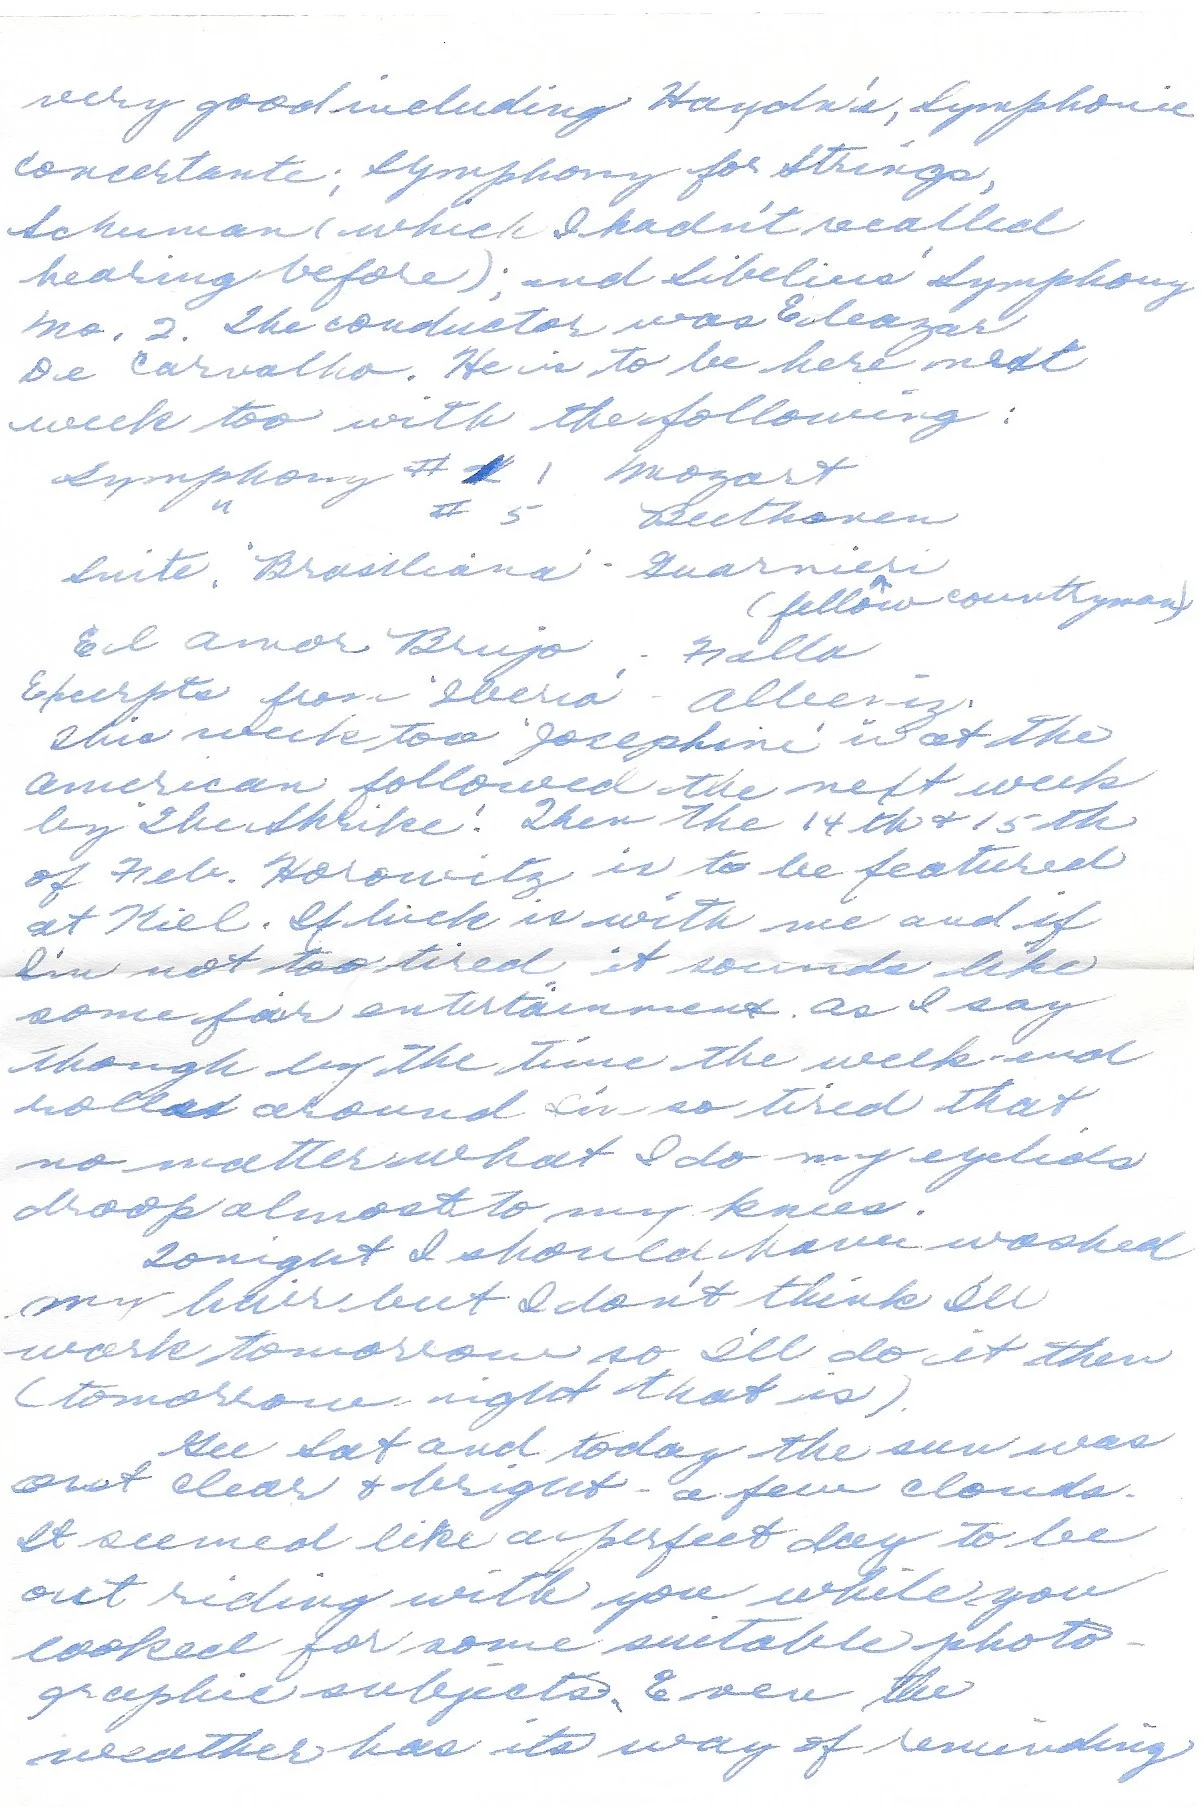 very good including Haydn's, Symphonie
Concertante; Symphony for Strings,
Schuman (which I hadn't recalled
hearing before); and Sibelius' Symphony
No. 2. The conductor was Eleazar
De Carvalho. He is to be here next
week too with the following:
Symphony # 1 Mozart
" # 5 Beethoven
Suite, 'Brasiliana' - Guarnieri
(fellow countryman)
El Amor Brujo - Falla
Exerpts from 'Iberia' - Albeniz.
This week too 'Josephine' is at the
American followed the next week
by 'The Shrike'. Then the 14th & 15th
of Feb. Horowitz is to be featured
at Kiel. If luck is with me and if
I'm not too tired it sounds like
some fair entertainment. As I say
though by the time the week-end
rolls around I'm so tired that
no matter what I do my eyelids
droop almost to my knees.
Tonight I should have washed
my hair but I don't think I'll
work tomorrow so I'll do it then
(tomorrow night that is).
Gee Sat and today the sun was
out clear & bright - a few clouds.
It seemed like a perfect day to be
out riding with you while you
looked for some suitable photo-
graphic subjects. Even the
weather has its way of reminding